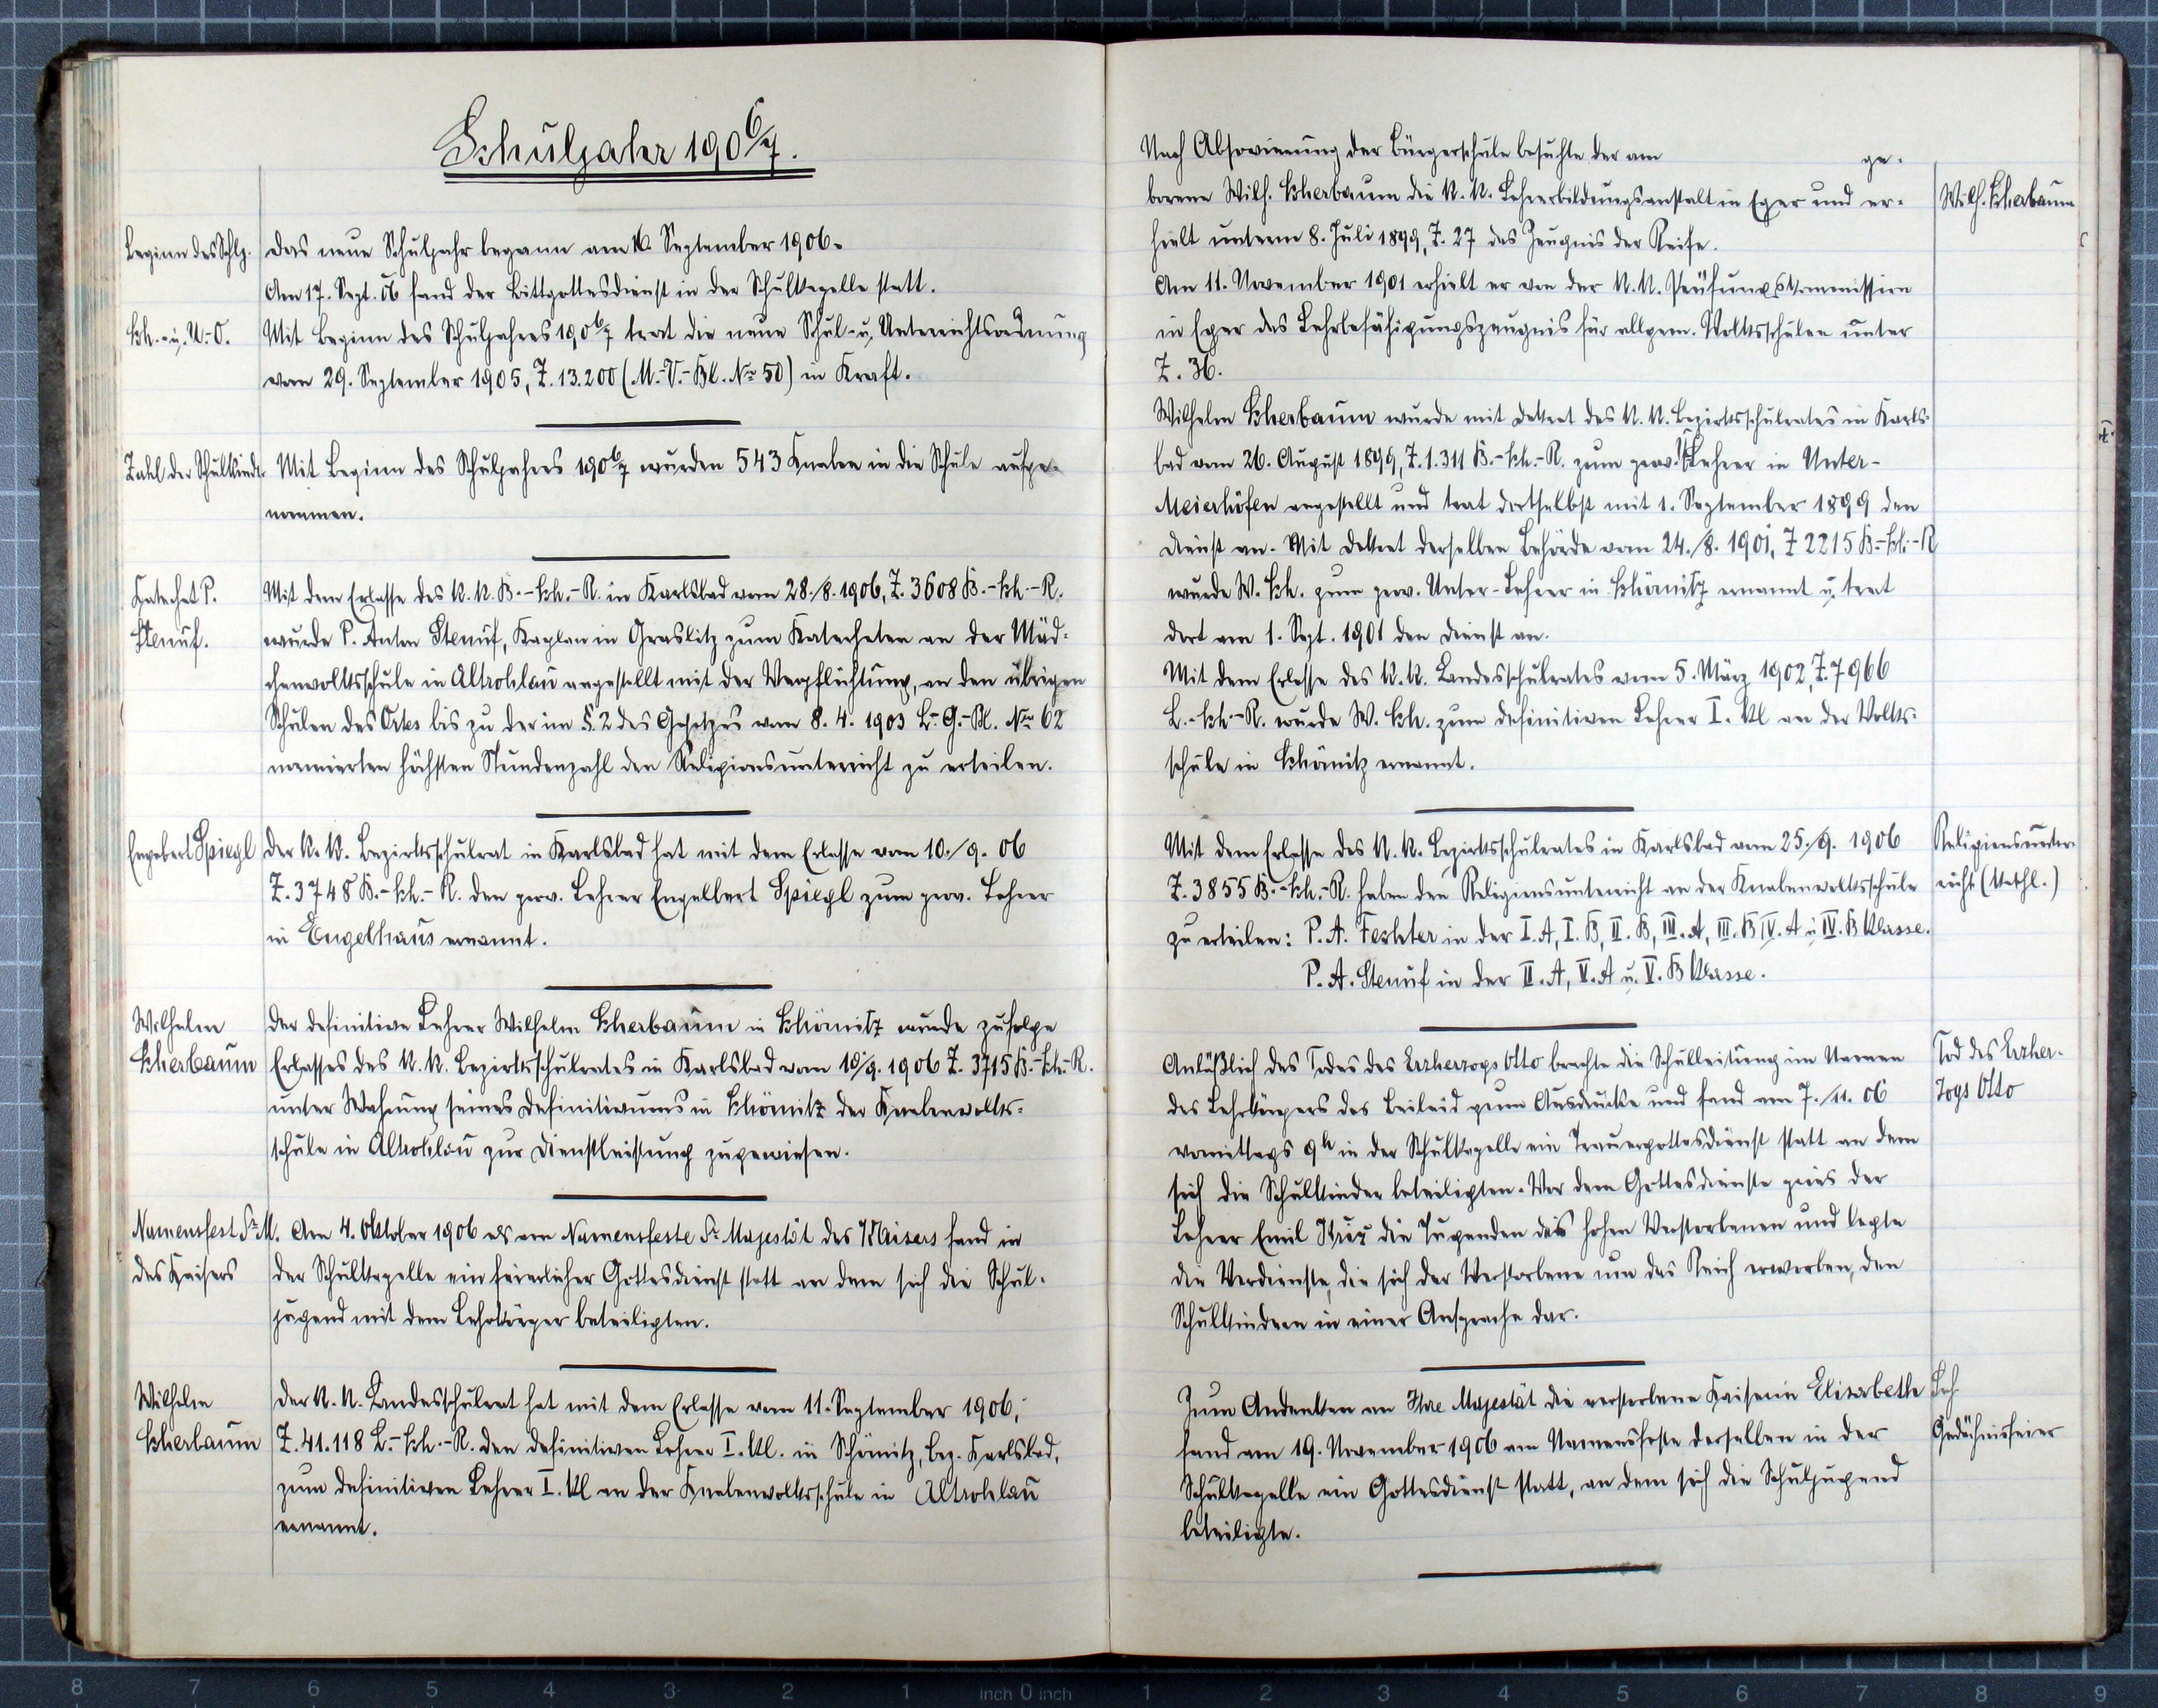 Schuljahr 1906/7.
Beginn des Schlj.
Das neue Schuljahr begann am 16. September 1906.
Am 17. Sept. 06 fand der Bittgottesdienst in der Schulkapelle statt.
Sch.- u. U.-O.
Mit Beginn des Schuljahres 1906/7 trat die neue Schul- u. Unterrichtsordnung
vom 29. September 1905, Z. 13.200 (M.-V.-Bl. No 50) in Kraft.
Zahl der Schulkind.
Mit Beginn des Schuljahres 1906/7 wurden 543 Knaben in die Schule aufge-
nommen.
Katechet P.
Stenuf.
Mit dem Erlasse des k. k. B.-Sch.-R. in Karlsbad vom 28./8. 1906, Z. 3608 B.-Sch.-R.
wurde P. Anton Stenuf, Kaplan in Graslitz zum Katecheten an der Mäd-
chenvolksschule in Altrohlau angestellt mit der Verpflichtung, an den übrigen
Schulen des Ortes bis zu der im §. 2 des Gesetzes vom 8. 4. 1903 L.-G.-Bl. No 62
normierten höchsten Stundenzahl den Religionsunterricht zu erteilen.
Engebert Spiegl
Der k. k. Bezirksschulrat in Karlsbad hat mit dem Erlasse vom 10./9. 06
Z. 3748 B.-Sch.-R. den prov. Lehrer Engelbert Spiegl zum prov. Lehrer
in Engelhaus ernannt.
Wilhelm
Scherbaum
Der definitive Lehrer Wilhelm Scherbaum in Schömitz wurde zufolge
Erlasses des k. k. Bezirksschulrates in Karlsbad vom 10/9. 1906 Z. 3715 B.-Sch.-R.
unter Wahrung seines Definitivums in Schömitz der Knabenvolks-
schule in Altrohlau zur Dienstleistung zugewiesen.
Namensfest Sr. M.
des Kaisers
Am 4. Oktober 1906 als am Namensfeste Sr. Majestät des Kaisers fand in
der Schulkapelle ein feierlicher Gottesdienst statt an dem sich die Schul-
jugend mit dem Lehrkörper beteiligten.
Wilhelm
Scherbaum
Der k. k. Landesschulrat hat mit dem Erlasse vom 11. September 1906,
Z. 41.118 L.-Sch.-R. den definitiven Lehrer I. Kl. in Schömitz, Bez. Karlsbad,
zum definitiven Lehrer I. Kl an der Knabenvolksschule in Altrohlau
ernannt.
Nach Absovierung der Bürgerschule besuchte der am ge-
borene Wilh. Scherbaum die k. k. Lehrerbildungsanstalt in Eger und er-
Wilh. Scherbaum
hielt unterm 8. Juli 1899, Z. 27 das Zeugnis der Reife.
Am 11. November 1901 erhielt er von der k. k. Prüfungskommission
in Eger das Lehrbefähigungszeugnis für allgem. Volksschulen unter
Z. 36.
Wilhelm Scherbaum wurde mit Dekret des k. k. Bezirksschulrates in Karls-
bad vom 26. August 1899, Z. 1.311 B.-Sch.-R. zum prov. Lehrer in Unter-
Meierhöfen angestellt und trat dortselbst mit 1. September 1899 den
Dienst an. Mit Dekret derselben Behörde vom 24./8. 1901, Z 2215 B.-Sch.-R
wurde W. Sch. zum prov. Unter-Lehrer in Schömitz ernannt u. trat
dort am 1. Sept. 1901 den Dienst an.
Mit dem Erlasse des k. k. Landesschulrates vom 5. März 1902, Z. 7966
L.-Sch-R. wurde W. Sch. zum definitiven Lehrer I. Kl an der Volks-
schule in Schömitz ernannt.
Mit dem Erlasse des k. k. Bezirksschulrates in Karlsbad vom 25./9. 1906
Religionsunter-
Z. 3855 B.-Sch.-R. haben den Religionsunterricht an der Knabenvolksschule
richt (kathl.)
zu erteilen: P. A. Feshter in der I. A, I. B, II. B, III. A, III. B IV. A u IV. B Klasse.
P. A. Stenuf in der II. A, V. A u. V. B Klasse.
Anläßlich des Todes des Erzherzogs Otto brachte die Schulleitung im Namen
Tod des Erzher-
des Lehrkörpers das Beileid zum Ausdrucke und fand am 7./11. 06
zogs Otto
vormittags 9h in der Schulkapelle ein Trauergottesdienst statt an dem
sich die Schulkinder beteiligten. Vor dem Gottesdienste pries der
Lehrer Emil die Tugenden des hohen Verstorbenen und legte
die Verdienste, die sich der Verstorbene um das Reich erworben, den
Schulkindern in einer Ansprache dar.
Zum Andenken an Ihre Majestät die verstorbene Kaiserin Elisabethe
fand am 19. November 1906 am Namensfeste derselben in der
Gedächnisfeier
Schulkapelle ein Gottesdienst statt, an dem sich die Schuljugend
beteiligte.
8 7 6 5 4 3 2 1 inch 0 inch 1 2 3 4 5 6 7 8 9